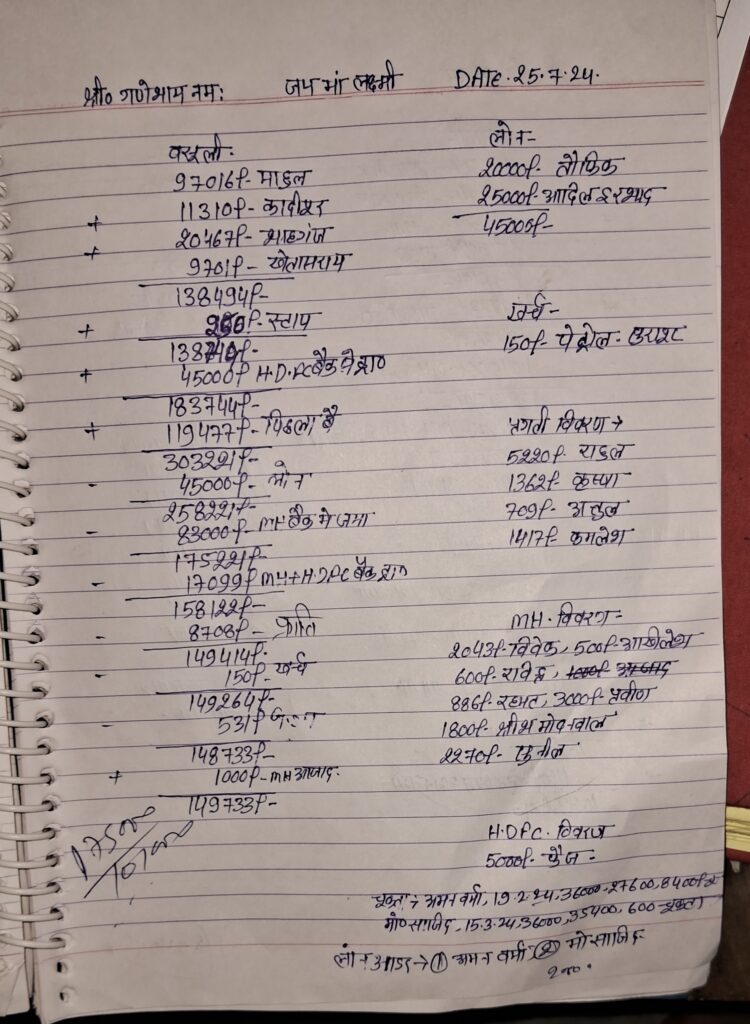 श्री० गणेशाय नमः जय मां लक्ष्मी DATE. 25.7.24.
वसूली.
97016/- माहुल
+ 11310/- कादीपुर
+ 20467/- शाहगंज
9701/- खेतासराय
138494/-
+ 250/- स्टाप
138744/-
+ 45000/- H.D.FC बैंक
183744/-
+ 119477/- पिछला बै
303221/-
- 45000/- लोन
258221/-
- 83000/- MH बैंक मे जमा
175221/-
- 17099/- MH+H.DFC बैंक द्वारा
158122/-
- 8708/-
149414/-
- 150/- खर्च
149264/-
- 531/-
148733/-
+ 1000/- MH आजाद.
149733/-
लोन-
20000/- तौफिक
25000/- आदिल इरशाद
45000/-
खर्च-
150/- पेट्रोल.
विवरण →
5220/- राहुल
1362/- कृष्णा
709/- अतुल
1417/- कमलेश
MH. विवरण-
2043/- विवेक, 500/- अखीलेश
600/- रविन्द्र, 1000/- आजाद
886/- रहमत, 3000/- प्रवीण
1800/-
2270/- सुनील
H.DFC. विवरण
5000/- फैज -
अमन वर्मा, 19.2.24, 36000-27600, 8400/-
मो० साजिद, 15.3.24, 36000, 35400, 600
→ ① अमन वर्मा ② मो साजिद